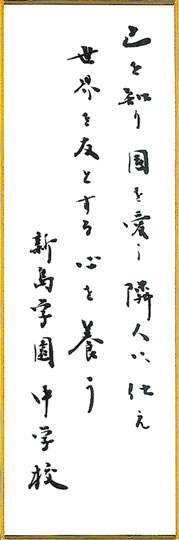 己を知り国を愛し隣人に仕え
世界を友とする心を養う
新島学園中学校